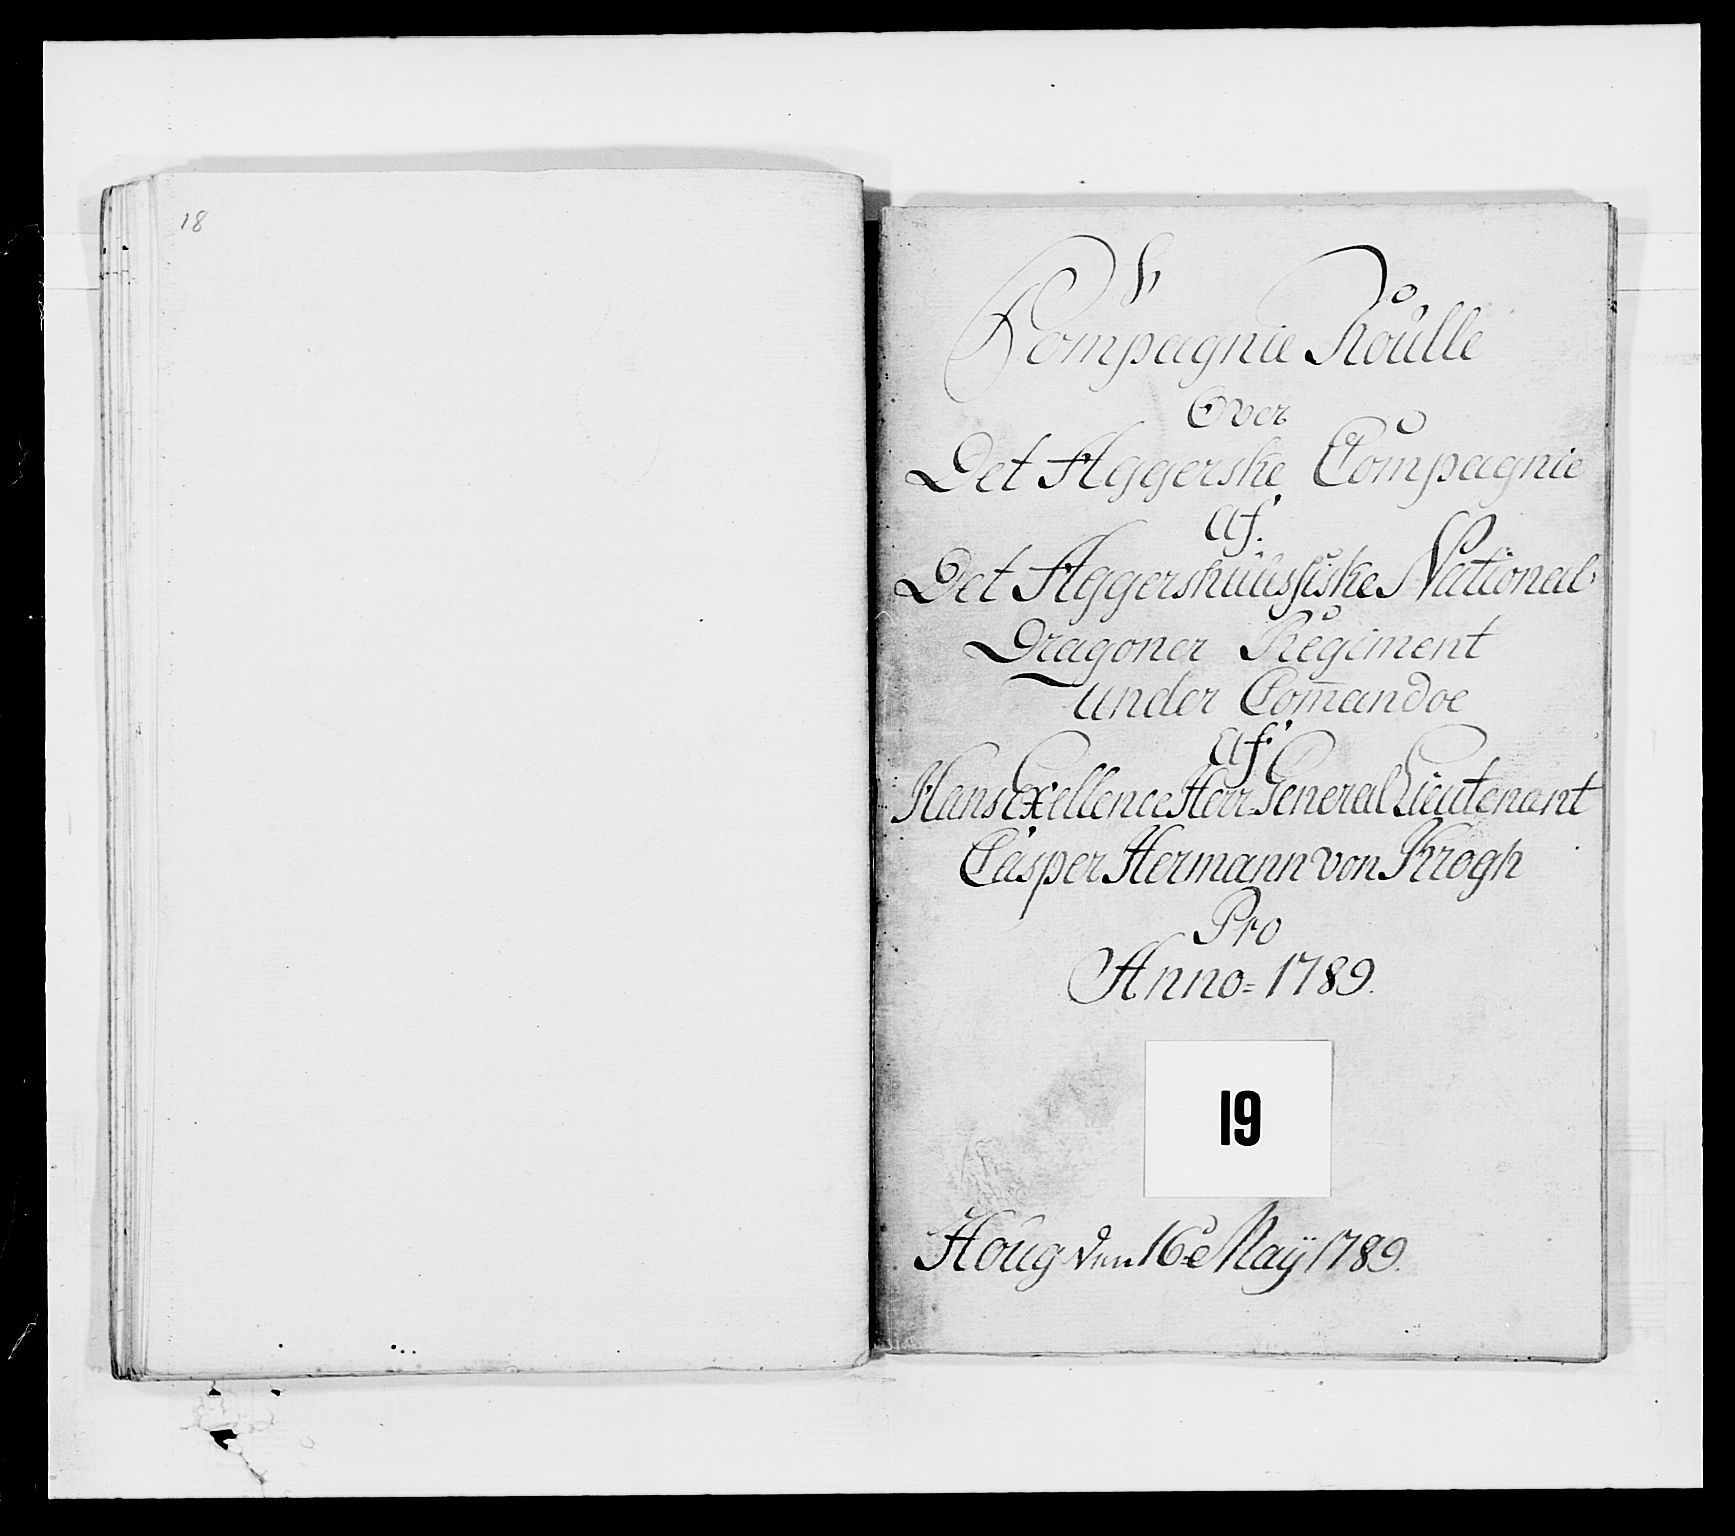 18
Compagnie Roulle
Over
Det Aggerske Compagnie
af.
Det Aggershuusiske National
Dragoner Regiment
under Com̄andoe
af
Hans Exellence Herr General Lieutenant
Casper Hermann von Krogh
Pro
Anno = 1789.
19
Houg den 16de Maÿ 1789.